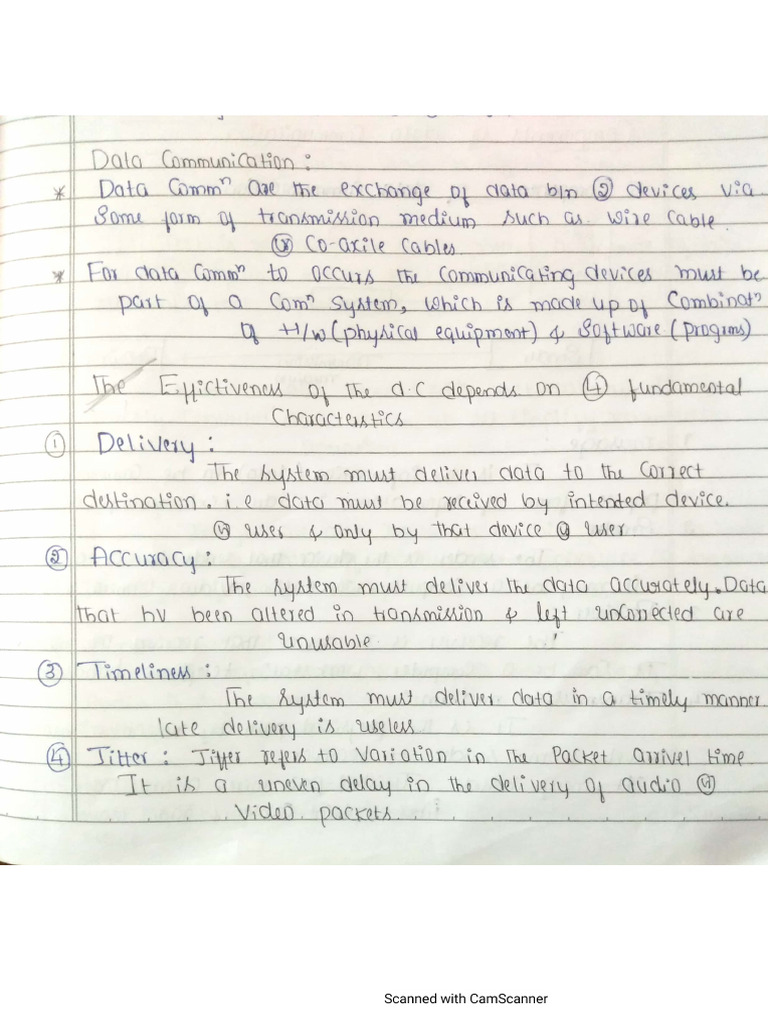 Data Communication :
* Data Commⁿ are the exchange of data b/n ② devices via
Some form of transmission medium such as wire cable
(or) Co-axile cables
* For data Commⁿ to occurs the communicating devices must be
part of a Comⁿ system, which is made up of Combinatⁿ
of H/w (physical equipment) & Software (progrms)
The Effictiveness of the d.c depends on ④ fundamental
Characterstics
① Delivery :
The system must deliver data to the correct
destination. i.e data must be received by intented device.
(or) user & only by that device (or) user
② Accuracy :
The system must deliver the data accurately. Data
that hv been altered in transmission & left unconrected are
unusable
③ Timeliness :
The system must deliver data in a timely manner
late delivery is useless
④ Jitter : Jitter refers to variation in the Packet arrivel time
It is a uneven delay in the delivery of audio (or)
Video packets.
Scanned with CamScanner